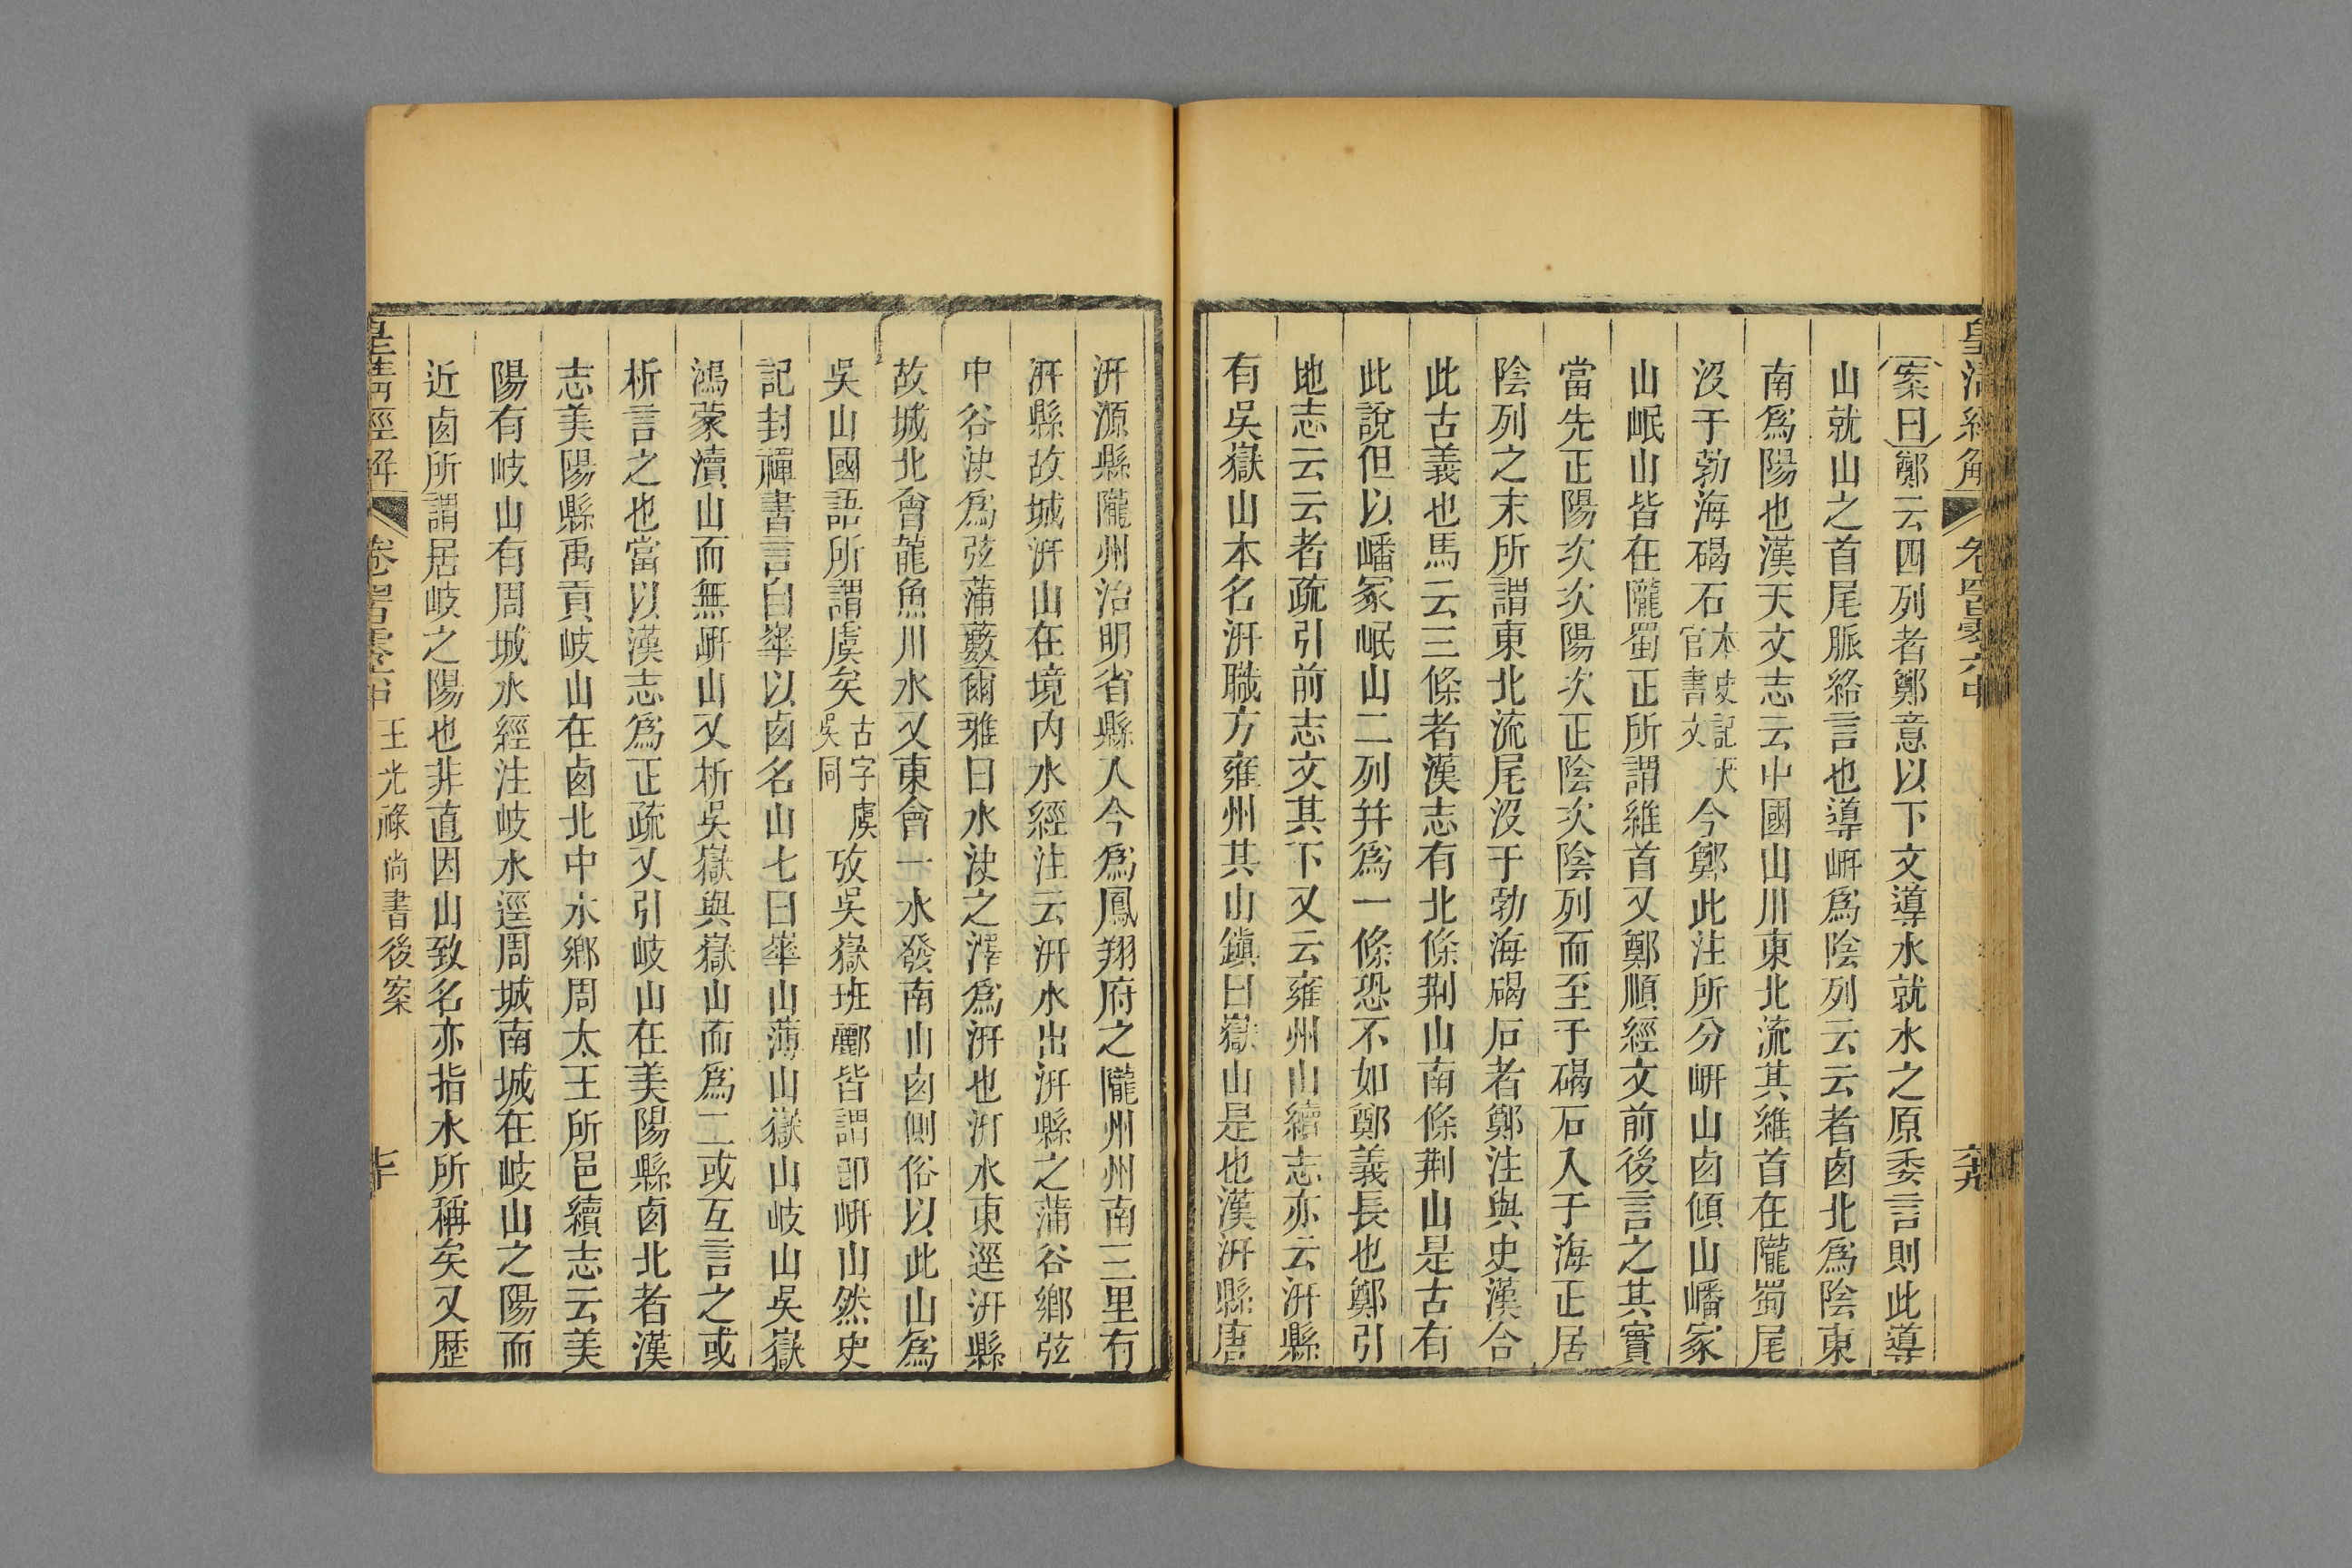 案曰鄭云四列者鄭意以下文導水就水之原委言則此導
山就山之首尾脈絡言也導岍爲陰列云云者鹵北爲陰東
南爲陽也漢天文志云中國山川東北流其維首在隴蜀尾
沒于勃海碣石本史記天官書文今鄭此注所分岍山鹵傾山嶓冢
山岷山皆在隴蜀正所謂維首又鄭順經文前後言之其實
當先正陽次次陽次正陰次陰列而至于碣石入于海正居
陰列之末所謂東北流尾沒于勃海碣石者鄭注與史漢合
此古義也馬云三條者漢志有北條荆山南條荆山是古有
此說但以嶓冢岷山二列幷爲一條恐不如鄭義長也鄭引
地志云云者疏引前志文其下又云雍州山續志亦云汧縣
有吳嶽山本名汧職方雍州其山鎭曰嶽山是也漢汧縣唐
汧源縣隴州治明省縣入今爲鳳翔府之隴州州南三里有
汧縣故城汧山在境内水經注云汧水出汧縣之蒲谷鄉弦
中谷決爲弦蒲藪爾雅曰水決之澤爲汧也汧水東逕汧縣
故城北會龍魚川水又東會一水發南山鹵側俗以此山爲
吳山國語所謂虞矣古字虞吳同攷吳嶽班酈皆謂卽岍山然史
記封禪書言自華以鹵名山七曰華山薄山嶽山岐山吳嶽
鴻蒙瀆山而無岍山又析吳嶽與嶽山而爲二或互言之或
析言之也當以漢志爲正疏又引岐山在美陽縣鹵北者漢
志美陽縣禹貢岐山在鹵北中水鄉周太王所邑續志云美
陽有岐山有周城水經注岐水逕周城南城在岐山之陽而
近鹵所謂居岐之陽也非直因山致名亦指水所稱矣又歷
王光祿尚書後案